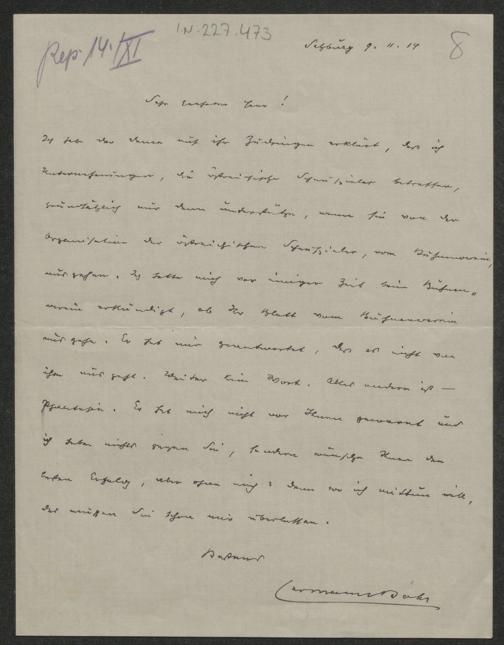 I.N. 227.473
Rep. 14./XI
8
Salzburg 9. 11. 14
Sehr geehrter Herr!
Ich habe der Dame auf ihr Zudringen erklärt, daß ich
Unternehmungen, die österreichische Schauspieler betreffen,
grundsätzlich nur dann unterstütze, wenn sie von der
Organisation der österreichischen Schauspieler, vom Bühnenverein,
ausgehen. Ich hatte mich vor einiger Zeit beim Bühnen-
verein erkundigt, ob Ihr Blatt vom Bühnenverein
ausgehe. Er hat mir geantwortet, daß es nicht von
ihm ausgeht. Weiter kein Wort. Alles andere ist —
Phantasie. Er hat mich nicht vor Ihnen gewarnt und
ich habe nichts gegen Sie, sondern wünsche Ihnen den
besten Erfolg, aber ohne mich: denn wo ich mittun will,
das müssen Sie schon mir überlassen.
Hermann Bahr